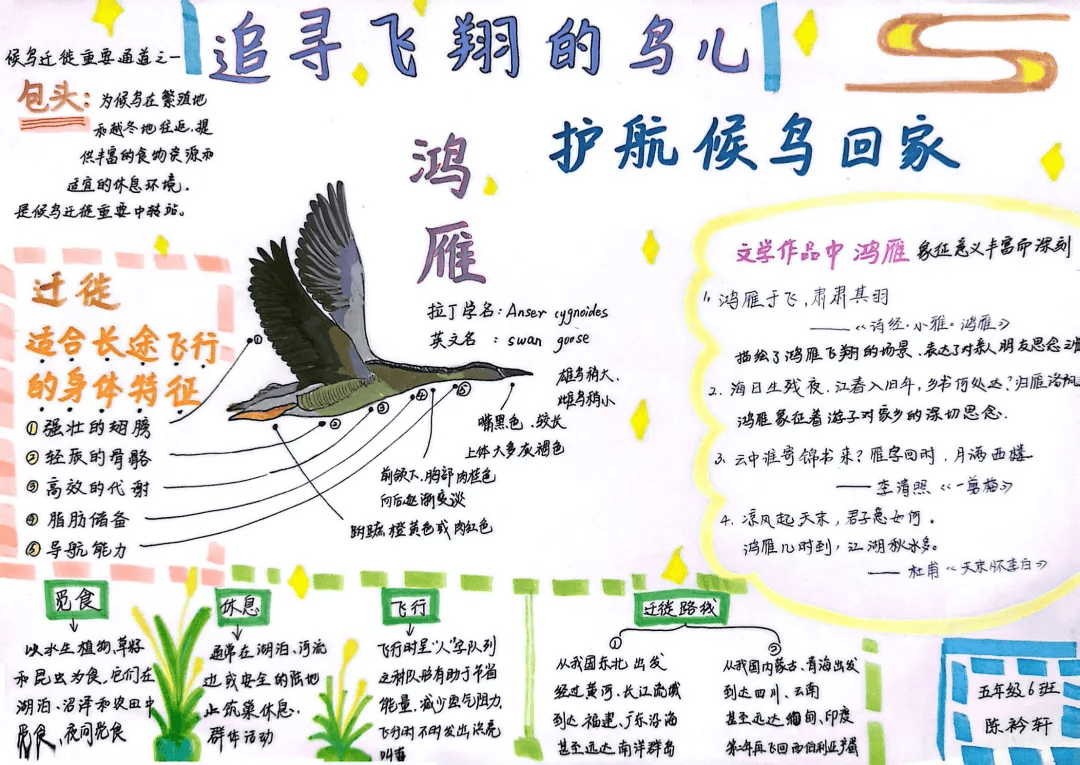 追寻飞翔的鸟儿
护航候鸟回家
候鸟迁徙重要通道之一
包头:为候鸟在繁殖地
和越冬地往返,提
供丰富的食物资源和
适宜的休息环境.
是候鸟迁徙重要中转站。
鸿雁
拉丁学名:Anser cygnoides
英文名:swan goose
雄鸟稍大,
雌鸟稍小
嘴黑色、较长
上体大多灰褐色
前颈下、胸部肉桂色
向后逐渐变淡
跗蹠橙黄色或肉红色
迁徙
适合长途飞行
的身体特征
①强壮的翅膀
②轻质的骨骼
③高效的代谢
④脂肪储备
⑤导航能力
① ② ③ ④ ⑤
文学作品中鸿雁象征意义丰富而深刻
1.鸿雁于飞,肃肃其羽
——《诗经·小雅·鸿雁》
描绘了鸿雁飞翔的场景、表达了对亲人朋友思念之情
2.海日生残夜、江春入旧年,乡书何处达?归雁洛阳
鸿雁象征着游子对家乡的深切思念.
3.云中谁寄锦书来?雁字回时,月满西楼
——李清照《一剪梅》
4.凉风起天末,君子意如何。
鸿雁几时到,江湖秋水多。
——杜甫《天末怀李白》
觅食
以水生植物,草籽
和昆虫为食,它们在
湖泊、沼泽和农田中
觅食,夜间觅食
休息
通常在湖泊、河流
边或安全的陆地
上筑巢休息.
群体活动
飞行
飞行时呈"人"字队列
这种队形有助于节省
能量,减少空气阻力,
飞行时不时发出洪亮
叫声
迁徙路线
①
从我国东北出发
经过黄河、长江流域
到达福建、广东沿海
甚至远达南洋群岛
②
从我国内蒙古、青海出发
到达四川、云南
甚至远达缅甸、印度
第2年再飞回西伯利亚产蛋
五年级6班
陈衿轩